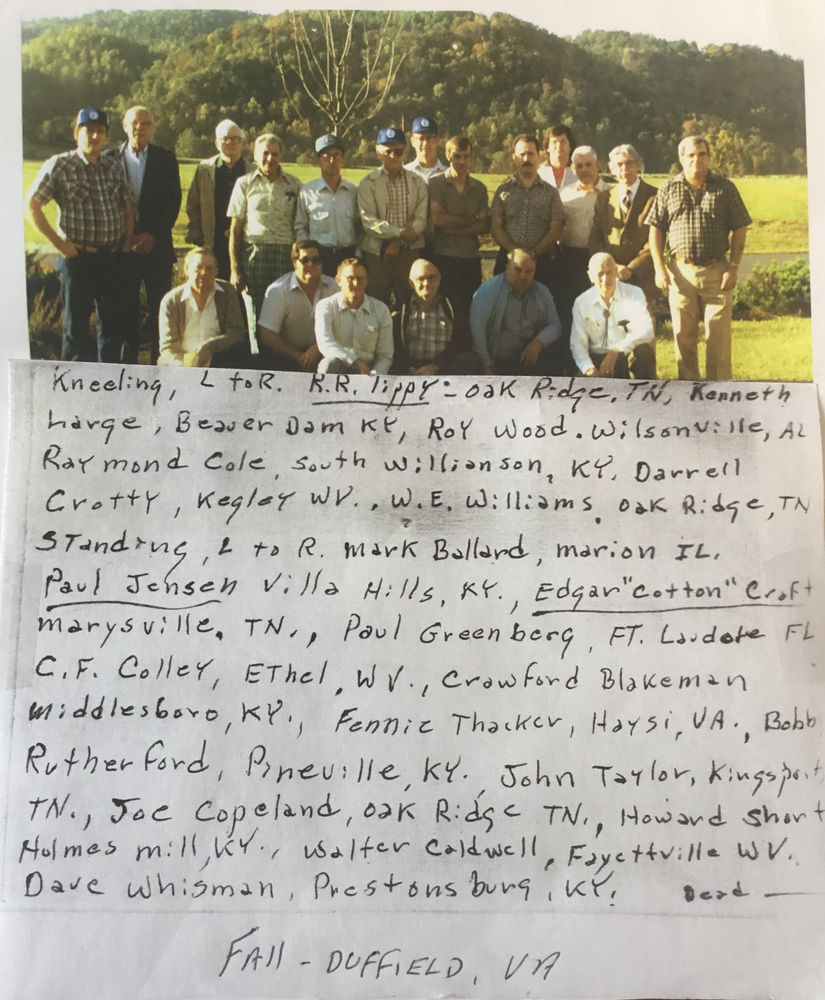 Kneeling, L to R. R.R. Tippy - Oak Ridge, TN, Kenneth
Large, Beaver Dam KY, Roy Wood. Wilsonville, AL
Raymond Cole, South Willianson, KY, Darrell
Crotty, Kegley WV., W.E. Williams, Oak Ridge, TN
Standing, L to R. Mark Ballard, Marion IL.
Paul Jensen Villa Hills, KY., Edgar "Cotton" Croft
Marysville, TN., Paul Greenberg, FT. Laudote FL
C.F. Colley, Ethel, WV., Crawford Blakeman
Middlesboro, KY., Fennie Thacker, Haysi, VA., Bobb
Rutherford, Pineville, KY., John Taylor, Kingsport,
TN., Joe Copeland, Oak Ridge TN., Howard Short
Holmes Mill, KY., Walter Caldwell, Fayettville WV.
Dave Whisman, Prestonsburg, KY. Dead —
FAll - DUFFIELD, VA